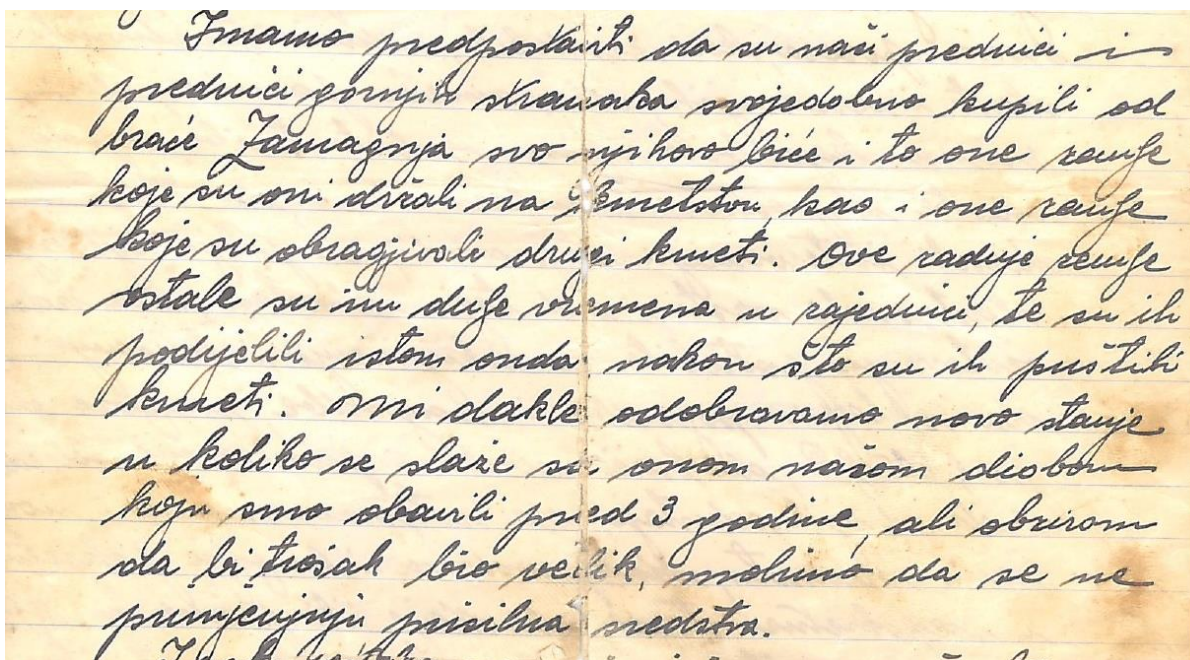 Imamo predpostaviti da su naši prednici i
prednici gornjih stranaka svojedobno kupili od
braće Zamagnja svo njihovo biće i to one zemlje
koje su oni držali na kmetstvu, kao i one zemlje
koje su obragjivali drugi kmeti. Ove zadnje zemlje
ostale su im duže vremena u zajednici, te su ih
podijelili istom onda nakon što su ih puštili
kmeti. Mi dakle odobravamo novo stanje
u koliko se slaže sa onom našom diobom
koju smo obavili pred 3 godine, ali obzirom
da bi trošak bio velik, molimo da se ne
primjenjuju prisilna sredstva.